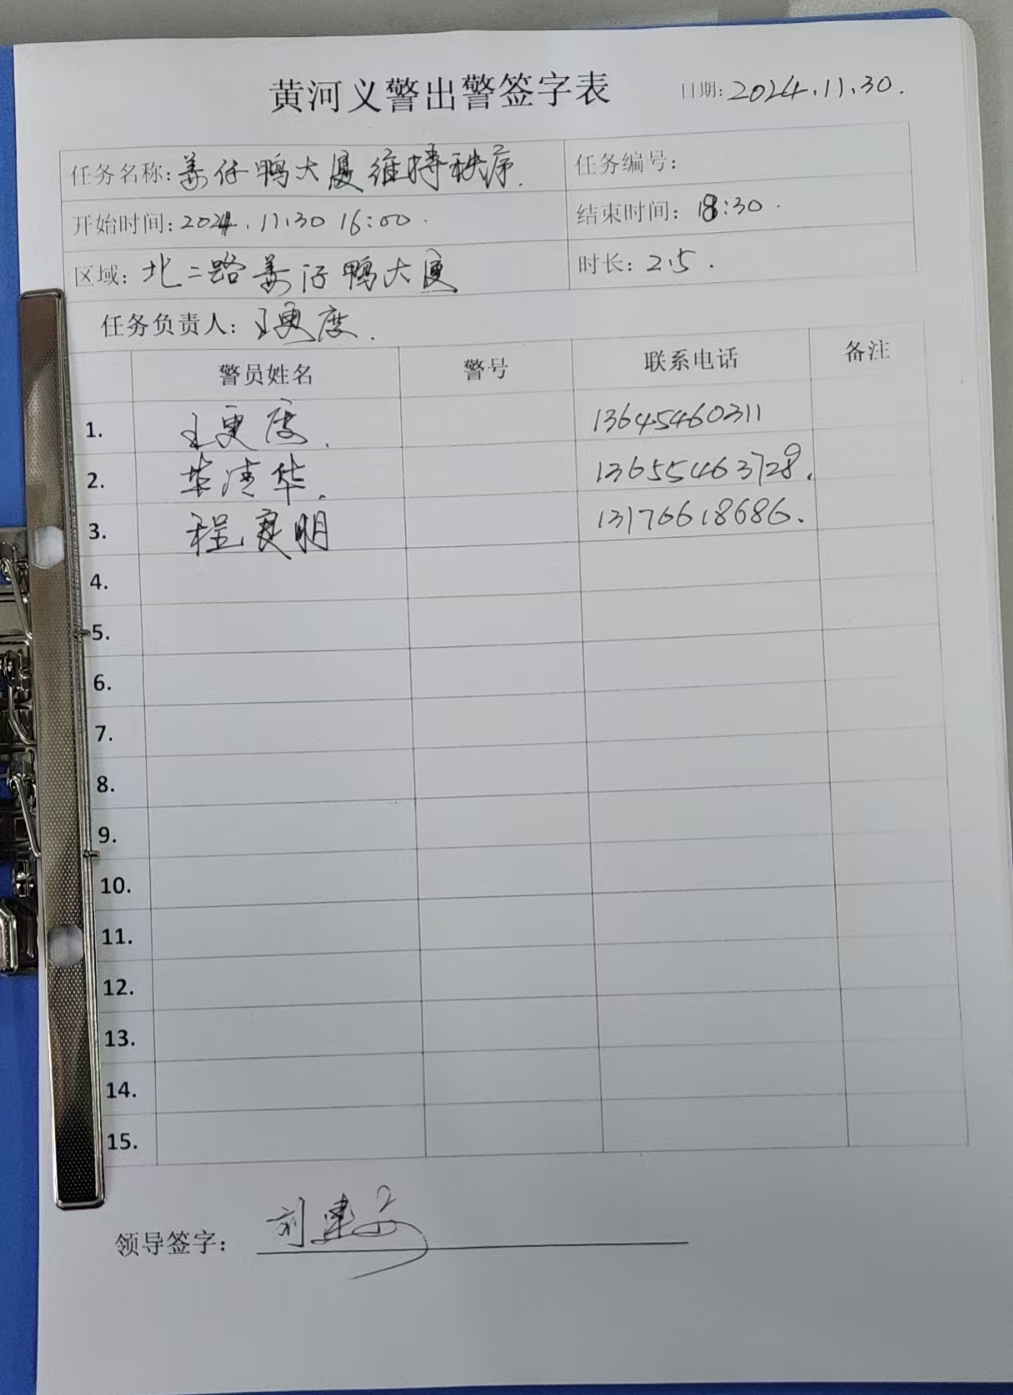 黄河义警出警签字表 日期: 2024.11.30.
任务名称: 姜仔鸭大厦维持秩序. 任务编号:
开始时间: 2024.11.30 16:00. 结束时间: 18:30.
区域: 北二路姜仔鸭大厦 时长: 2.5.
任务负责人: 王更度.
警员姓名 警号 联系电话 备注
1. 王更度. 13645460311
2. 清华. 13655463728.
3. 程良明 13176618686.
4.
5.
6.
7.
8.
9.
10.
11.
12.
13.
14.
15.
领导签字: 刘建